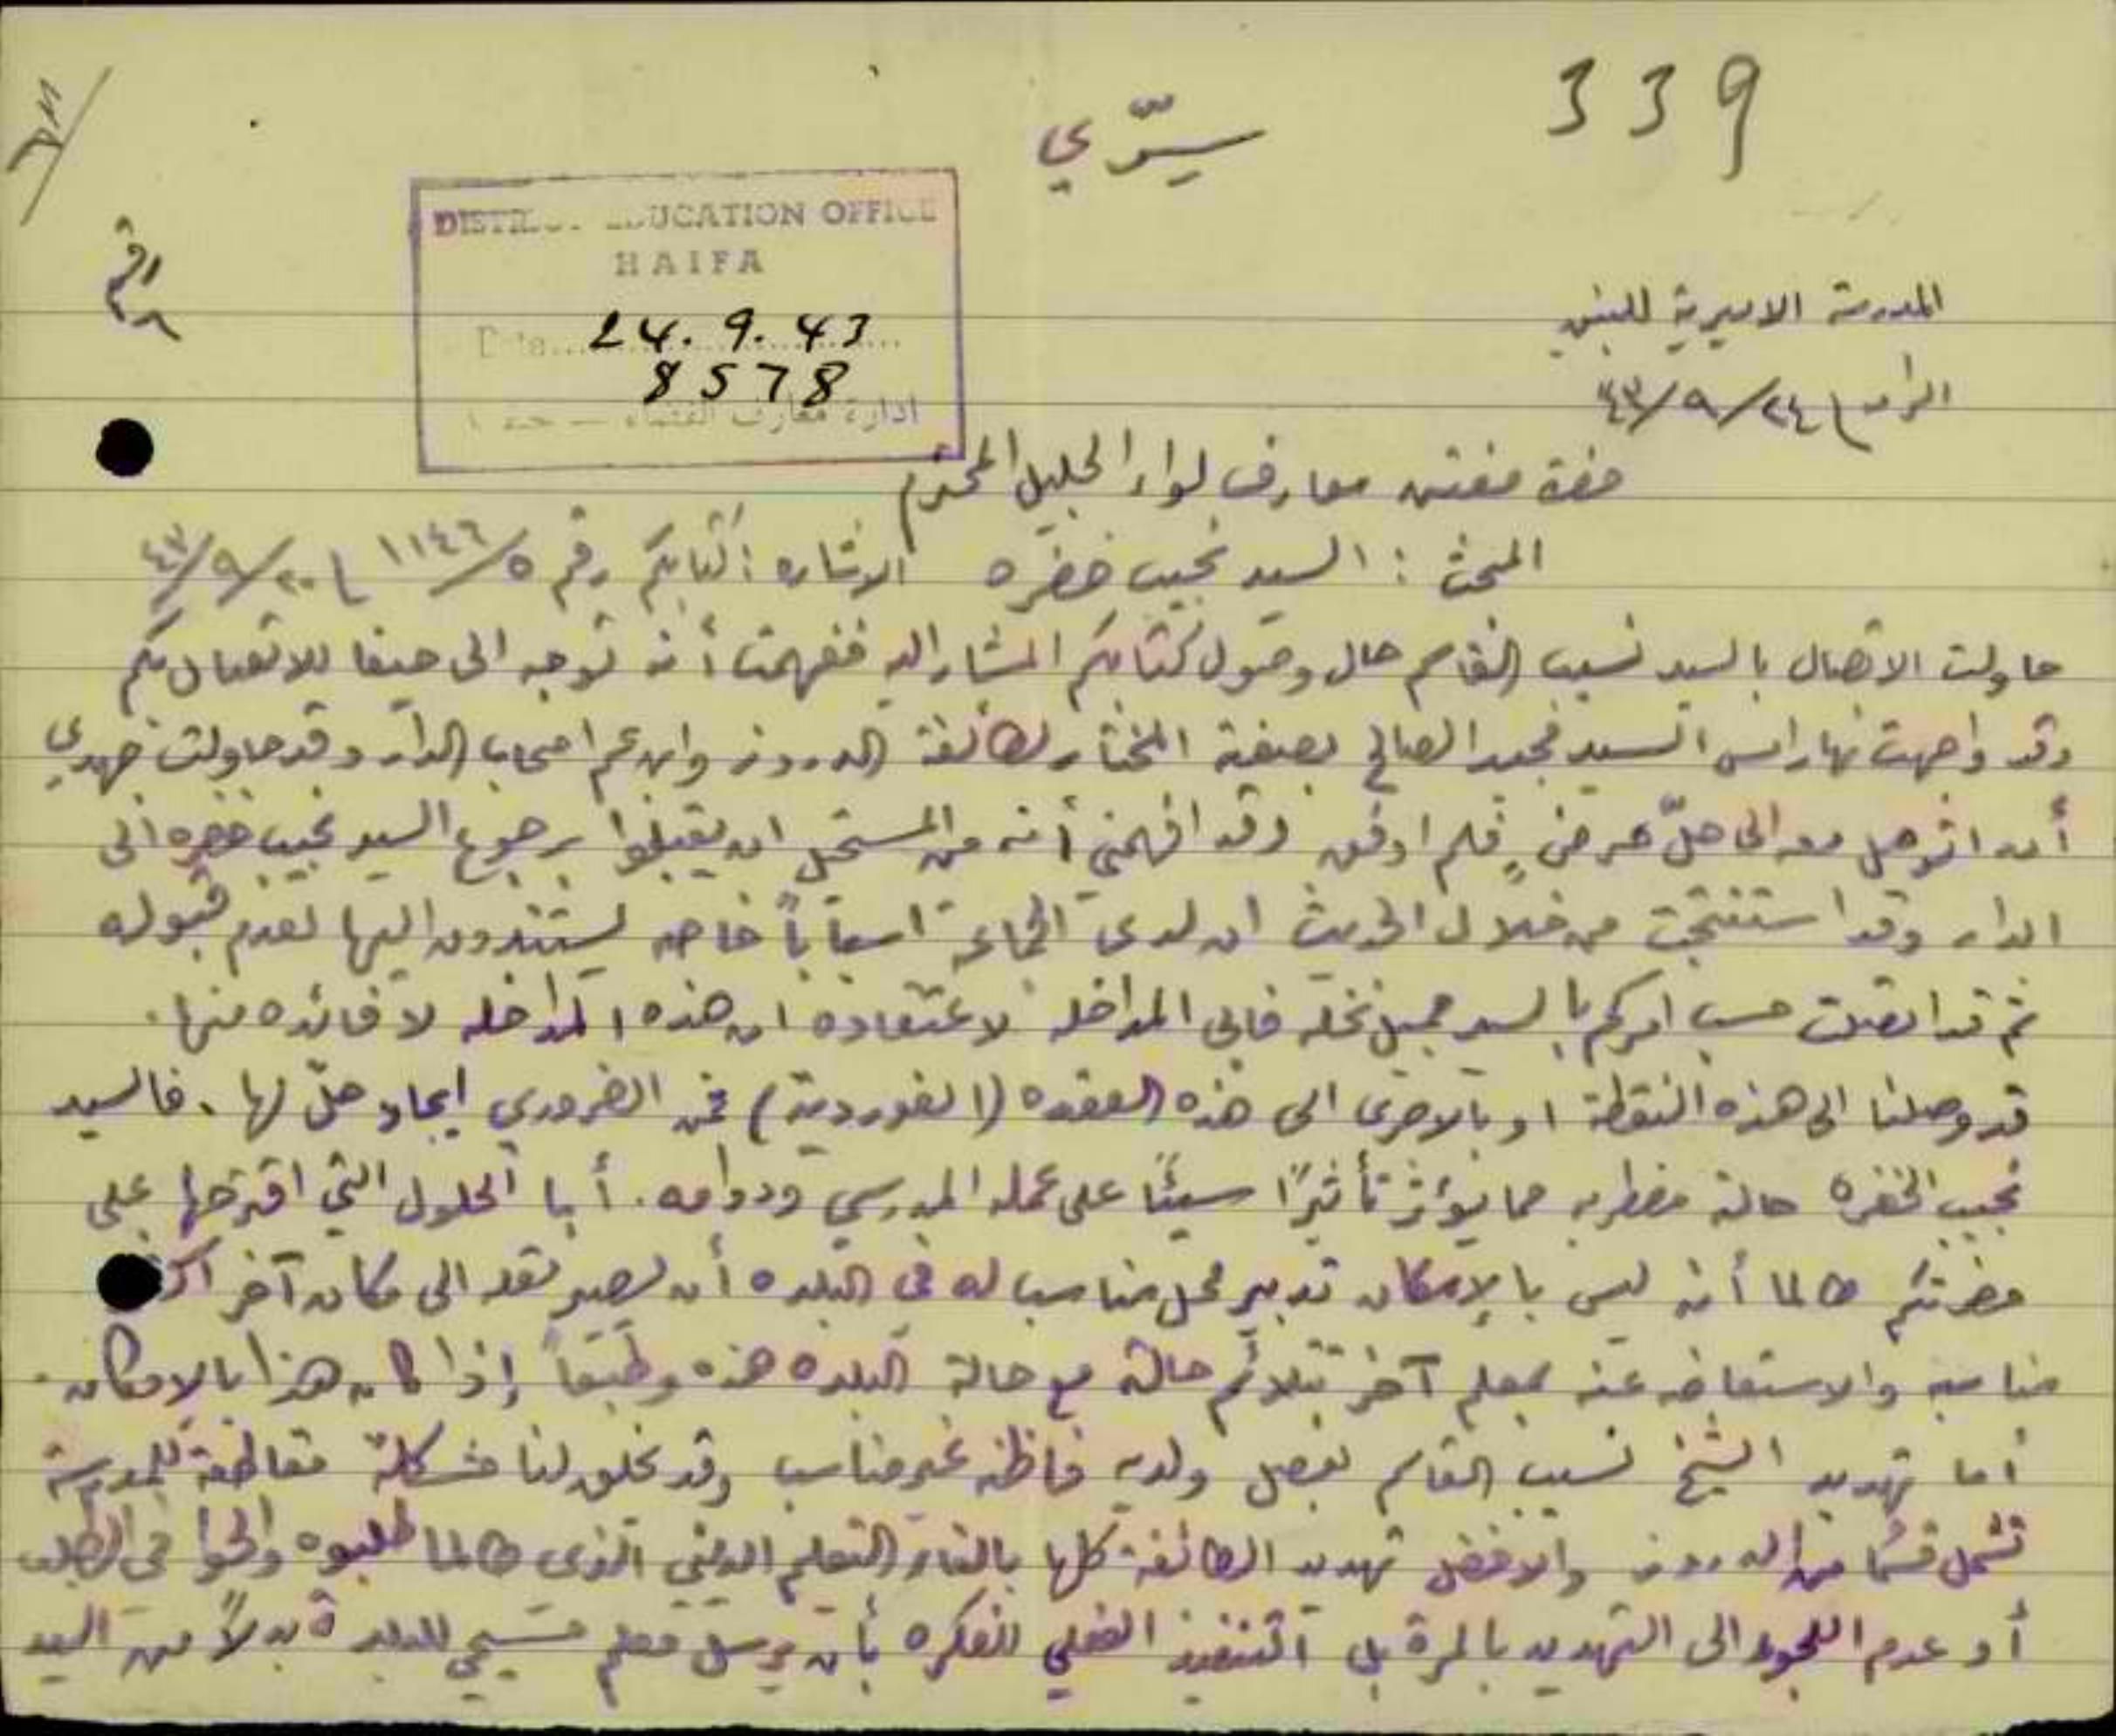 339
سرّي
DISTRICT EDUCATION OFFICE
HAIFA
Date... 24. 9. 43
8578
ادارة معارف القضاء —
رقم
المدرسة الاميرية للبنين
الرامه ٢٤/٩/٤٣
حضرة مفتش معارف لواء الجليل المحترم
المبحث : السيد نجيب خضره الاشاره : كتابكم رقم ١١٤٦/٥ ٢٠/٩/٤٣
حاولت الاتصال بالسيد نسيب القاسم حال وصول كتابكم المشار اليه ففهمت أنه توجه الى حيفا للاتصال بكم
وقد واجهت نهار امس السيد مجيد الصالح بصفية المختار لطائفة الدروز وابن عم اصحاب الدار وقد حاولت جهدي
أن اتوصل معه الى حلّ مرضٍ فلم اوفق وقد افهمني أنه من المستحيل ان يقبلوا برجوع السيد نجيب خضره الى
الدار وقد استنتجت من خلال الحديث ان لدى الجماعة اسباباً خاصه يستندون اليها لعدم قبوله
ثم قد اتصلت حسب امركم بالسيد جميل نخله فابى المداخله لاعتقاده ان هذه المداخله لا فائده منها .
قد وصلنا الى هذه النقطة او بالاحرى الى هذه العقده (الغوردية) فمن الضروري ايجاد حلّ لها . فالسيد
نجيب الخضره حالته مضطربه مما يؤثر تأثيرًا سيئًا على عمله المدرسي ودوامه . أما الحلول التي اقترحها على
حضرتكم طالما أنه ليس بالإمكان تدبير محل مناسب له في البلده أن يصير نقله الى مكان آخر اكثر
مناسبه والاستعاضه عنه بمعلم آخر تتلائم حالته مع حالة البلده هذه وطبعاً إذا كان هذا بالامكان .
أما تهديد الشيخ نسيب القاسم بفصل ولديه فاظنه غير مناسب وقد يخلق لنا مشكلة مقاطعة للمدرسة
تشمل قسمًا من الدروز والافضل تهديد الطائفة كلها بالغاء التعليم الديني الذى طالما طلبوه والحوا في الطلب
أو عدم اللجوء الى التهديد بالمرة بل التنفيذ الفعلي للفكره بأن يرسل معلم مسيحي للبلدة بدلاً من السيد